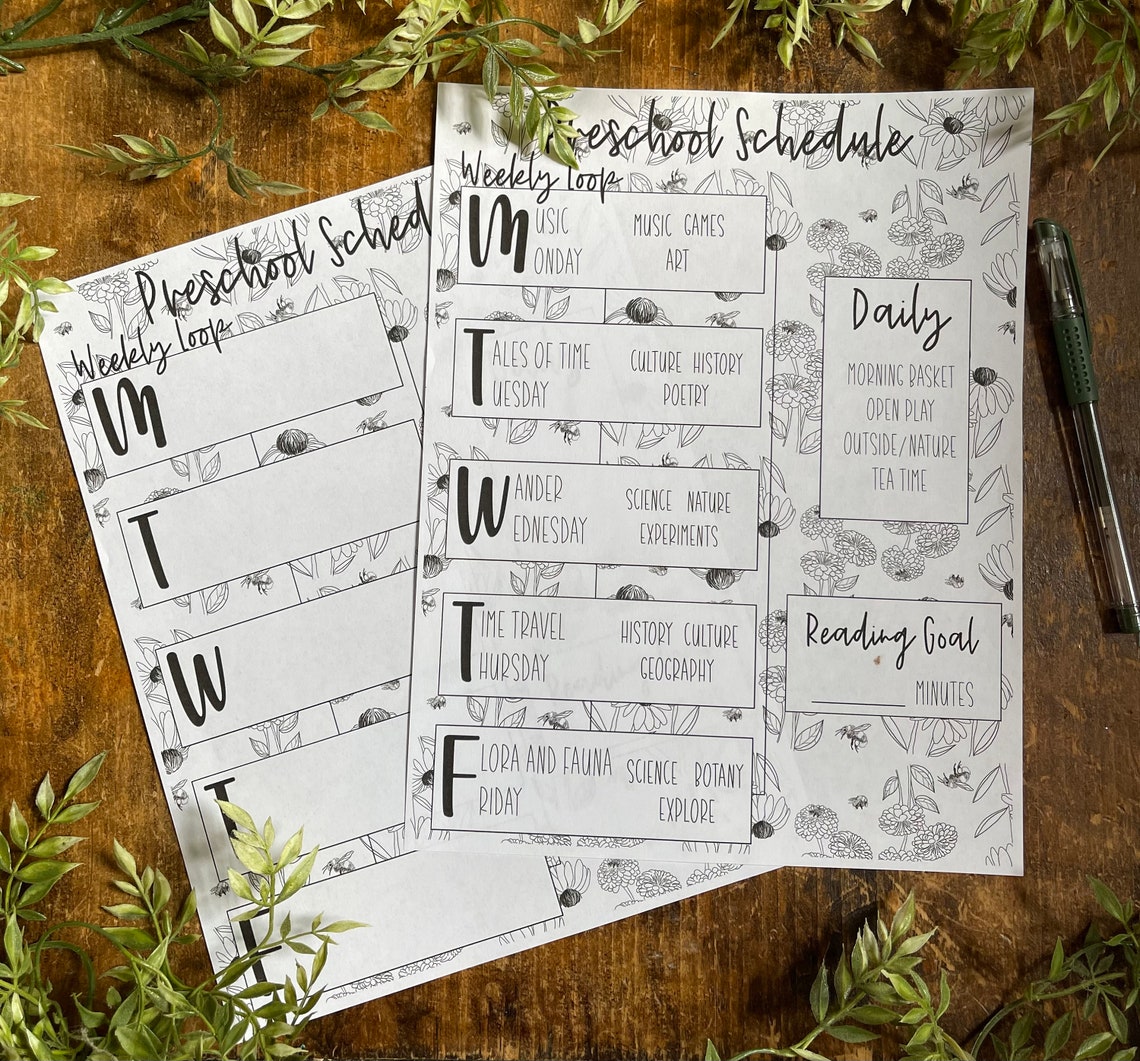 Preschool Schedule
Weekly Loop
MUSIC MONDAY
MUSIC GAMES
ART
TALES OF TIME TUESDAY
CULTURE HISTORY
POETRY
WANDER WEDNESDAY
SCIENCE NATURE
EXPERIMENTS
TIME TRAVEL THURSDAY
HISTORY CULTURE
GEOGRAPHY
FLORA AND FAUNA FRIDAY
SCIENCE BOTANY
EXPLORE
Daily
MORNING BASKET
OPEN PLAY
OUTSIDE/NATURE
TEA TIME
Reading Goal
________ MINUTES
Preschool Sched
Weekly Loop
M
T
W
T